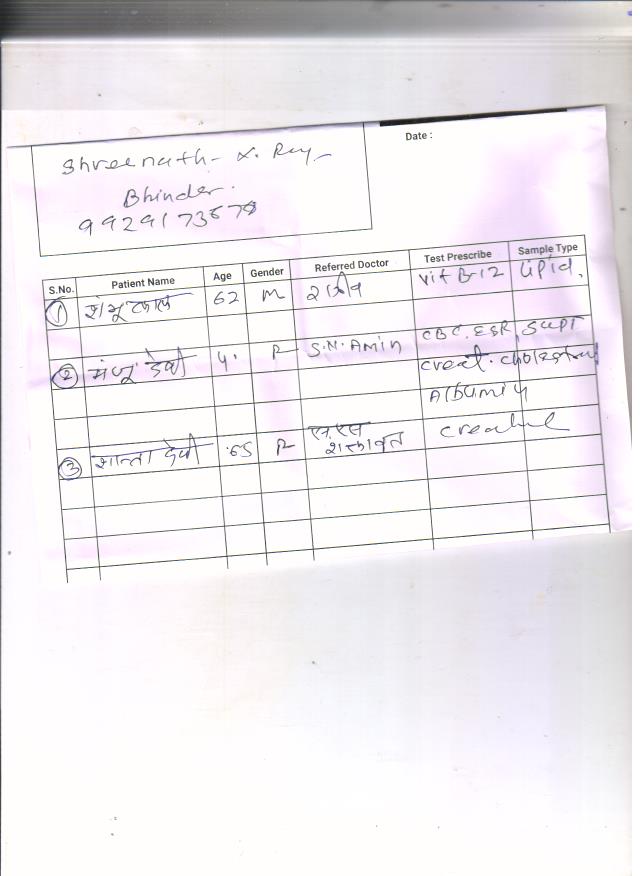 Date :
Shreenath X. Ray
Bhinder.
S.No. Patient Name Age Gender Referred Doctor Test Prescribe Sample Type
1 शंभूलाल 62 M Vit B-12 Lipid,
CBC. ESR, SGPT
2 मंजू देवी S.N. Amin creat. cholestrol
Albumin
3 शान्ता देवी 65 एस.एस
शक्तावत